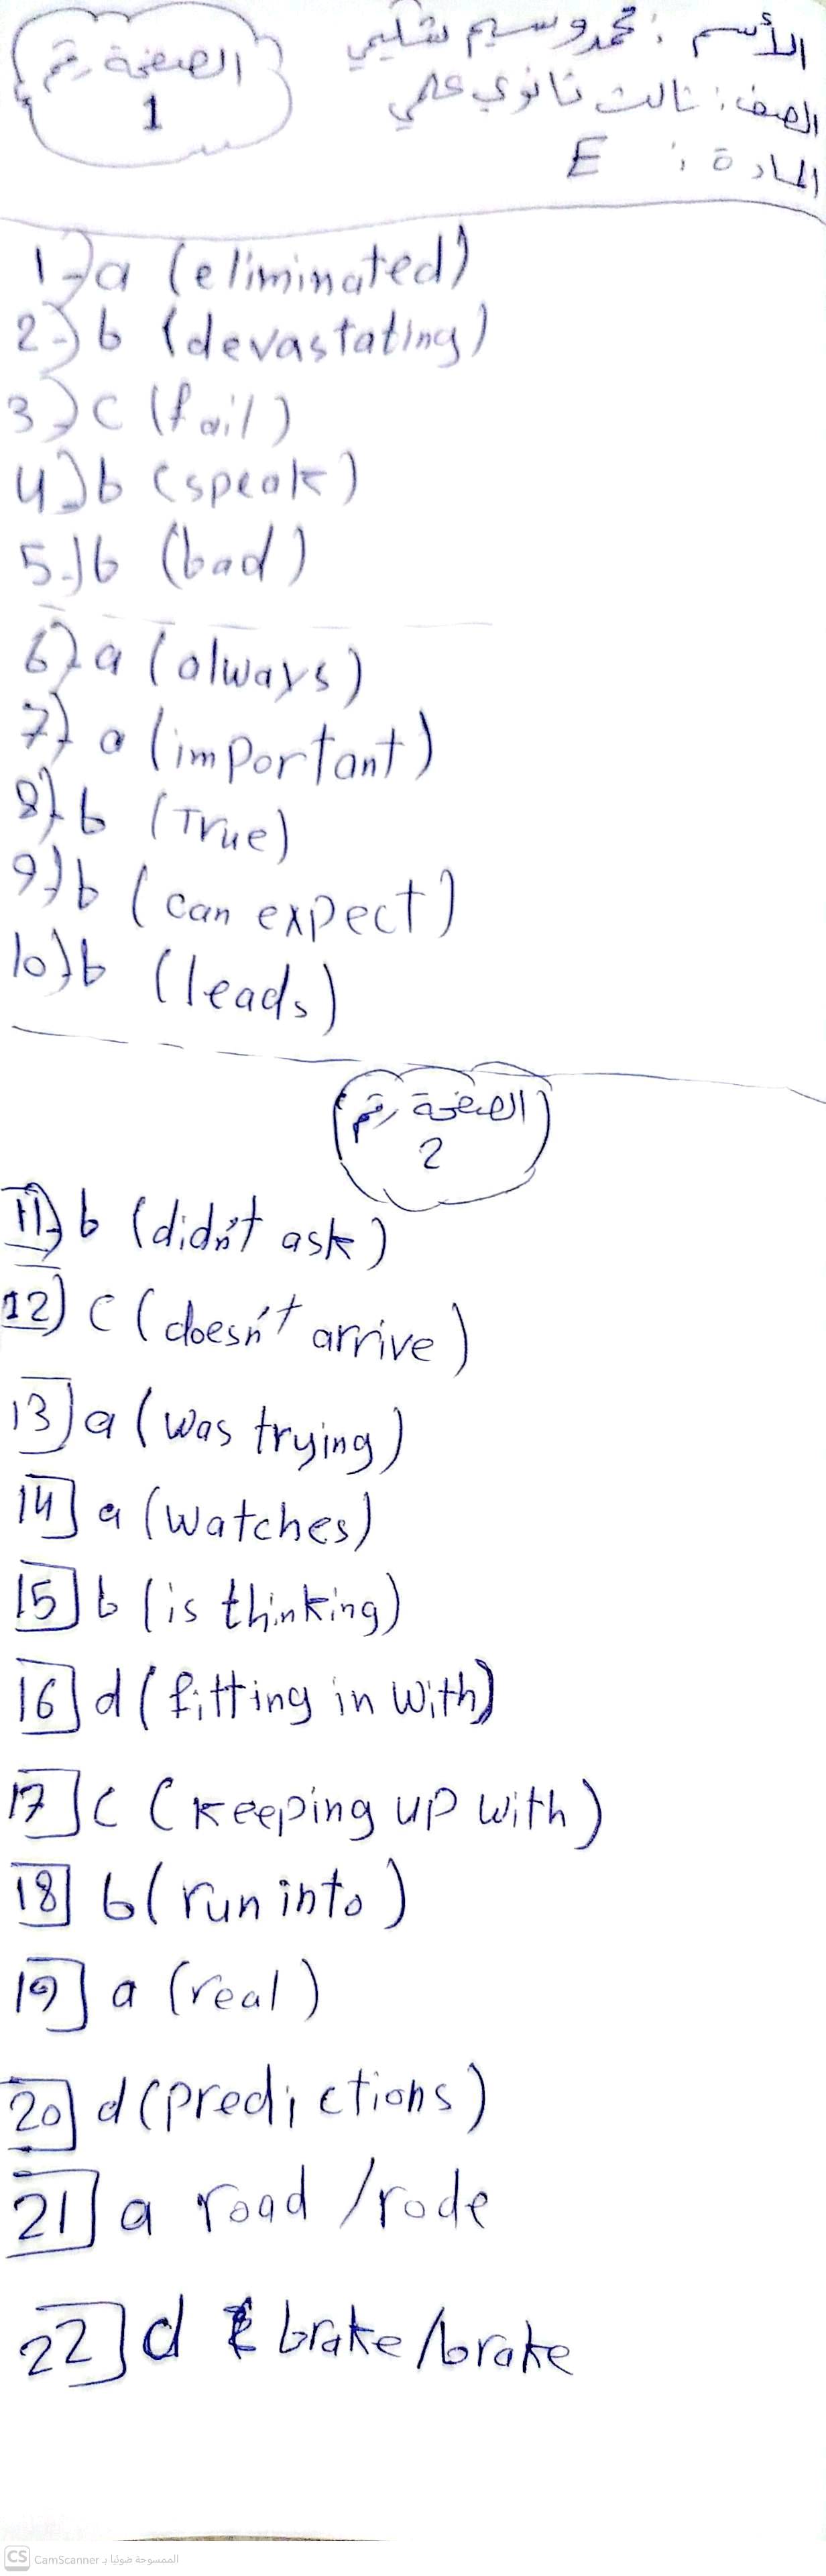 الأسم : محمد وسيم شليحي
الصف : ثالث ثانوي علمي
المادة : E
الصفحة رقم
1
1-) a (eliminated)
2-) b (devastating)
3-) c (fail)
4-) b (speak)
5-) b (bad)
6-) a (always)
7-) a (important)
8-) b (True)
9-) b (can expect)
10-) b (leads)
الصفحة رقم
2
11-) b (didn't ask)
12) c (doesn't arrive)
13) a (was trying)
14] a (watches)
15] b (is thinking)
16] d (fitting in with)
17] c (keeping up with)
18] b (run into)
19] a (real)
20] d (predictions)
21] a road /rode
22] d brake /brake
CS CamScanner الممسوحة ضوئيا بـ